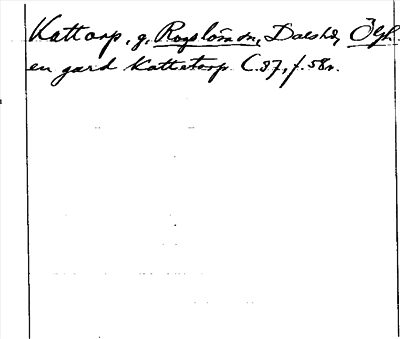 Kattarp, g, Rogslösa sn, Dals hd, Ögl.
en gard Kattetorp. C.37, f.58v.